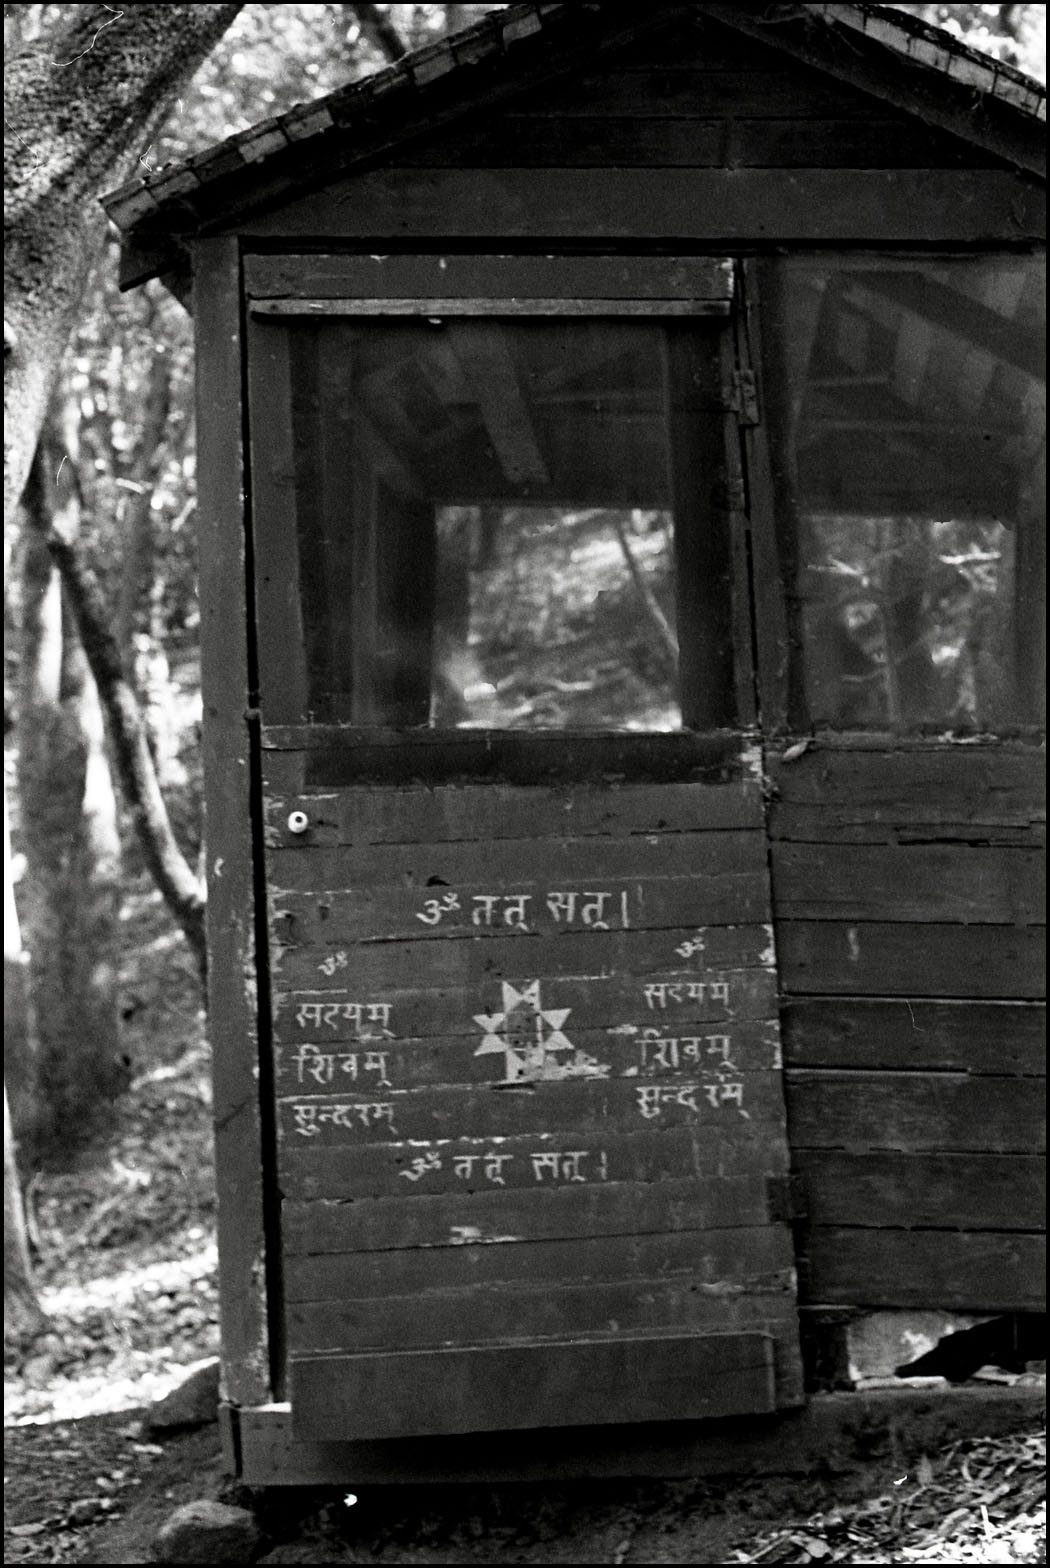 ॐ तत् सत् ।
ॐ
सत्यम्
शिवम्
सुन्दरम्
ॐ
सत्यम्
शिवम्
सुन्दरम्
ॐ तत् सत् ।